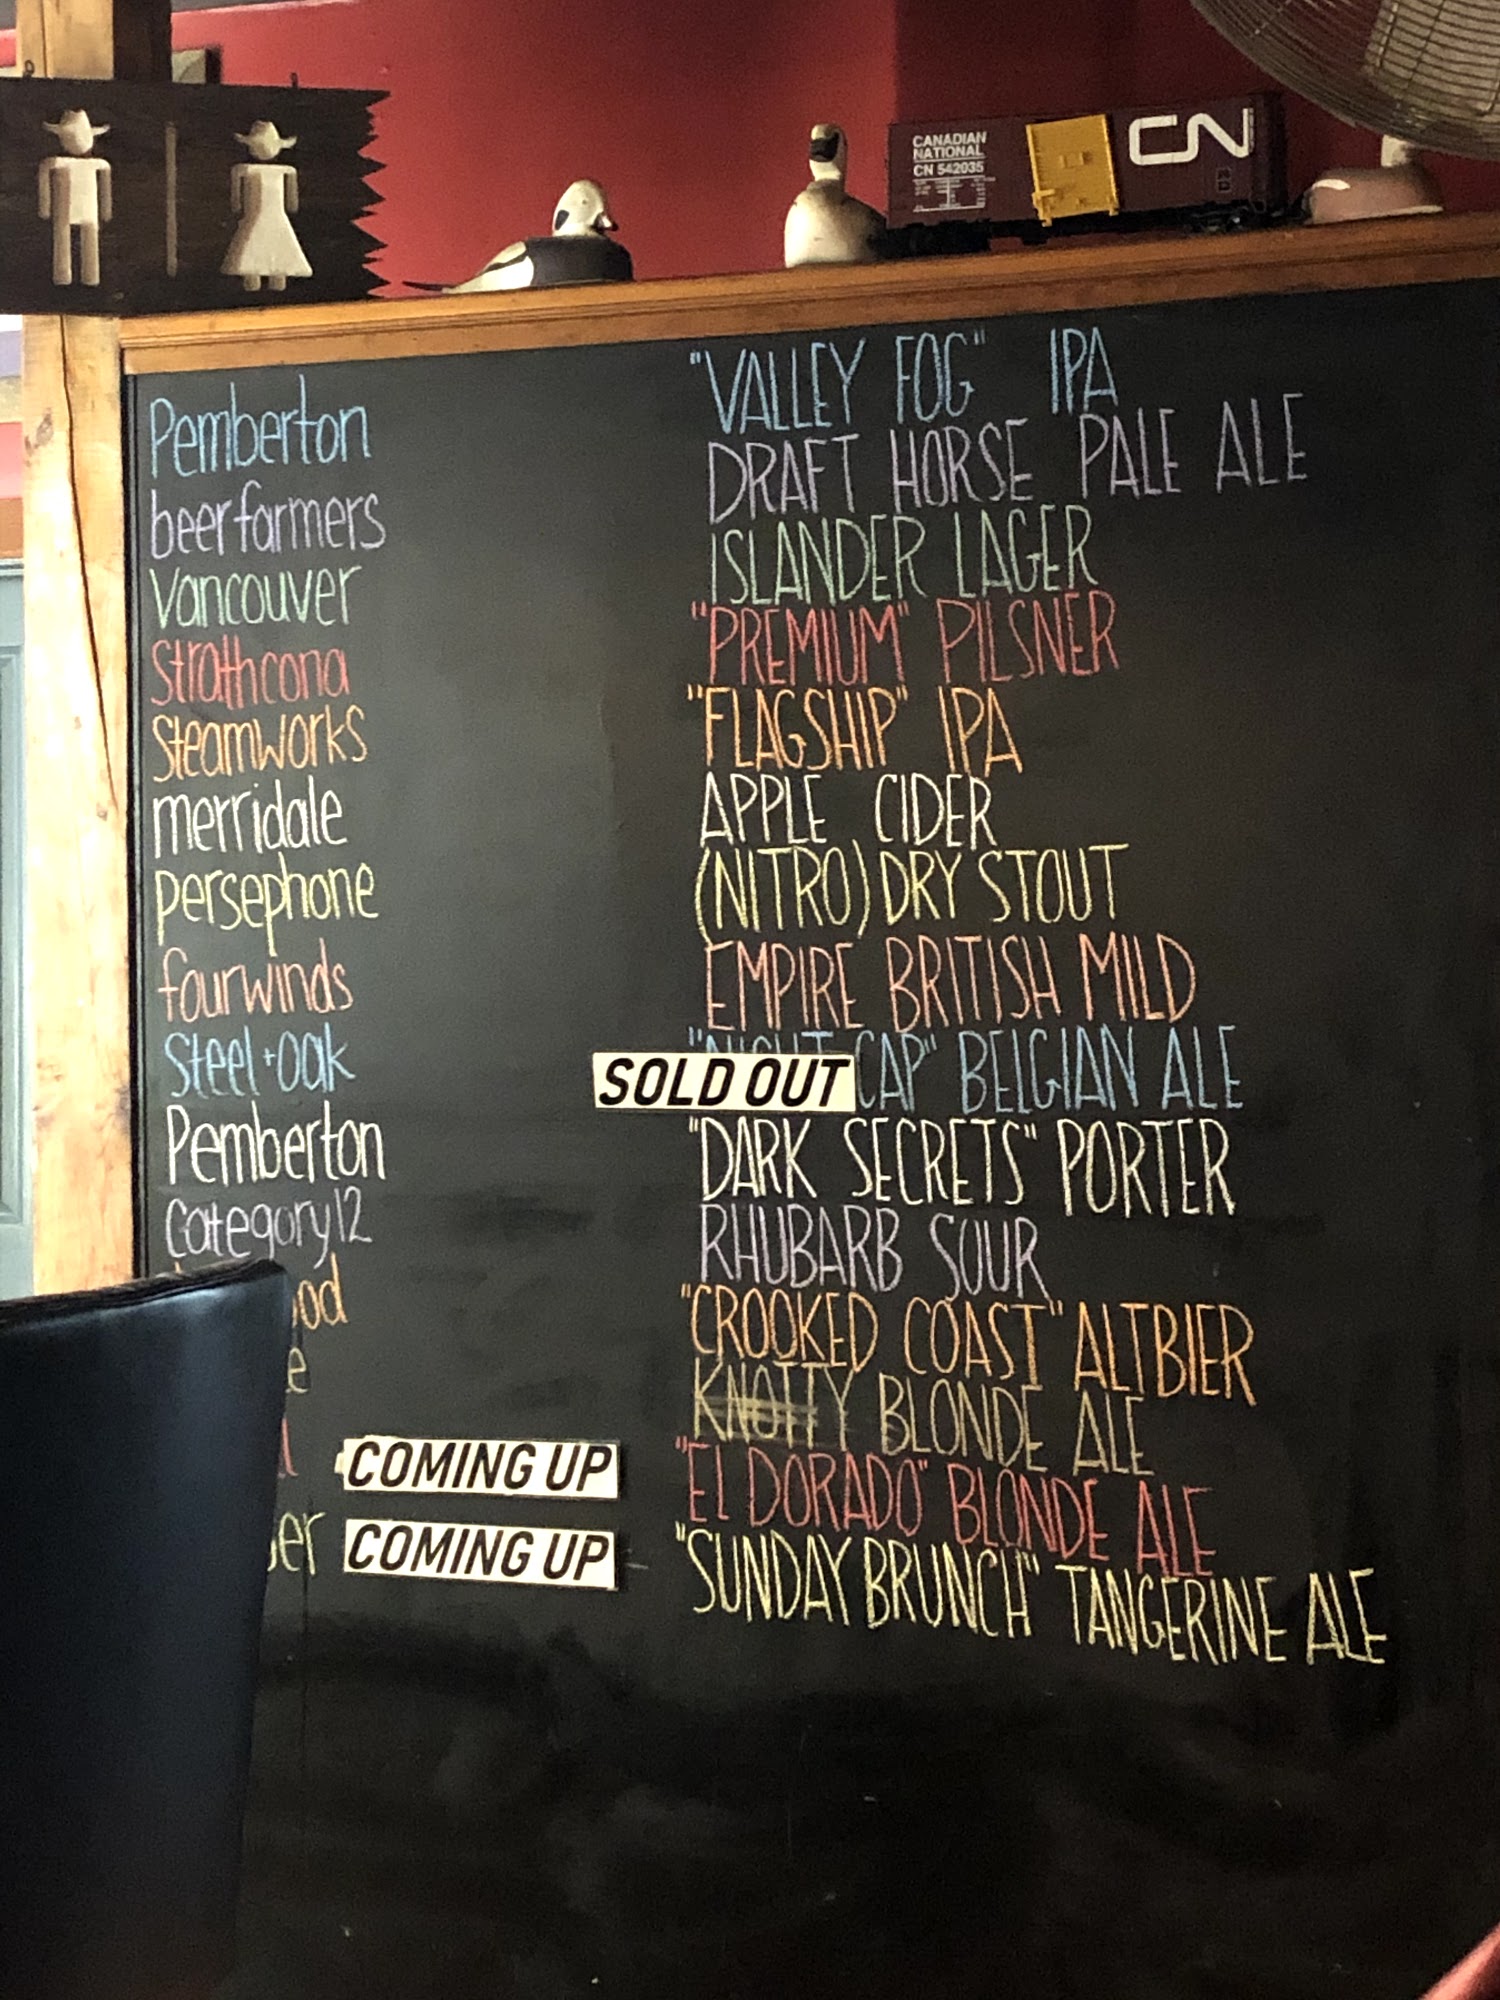 CANADIAN
NATIONAL
CN 542035
CN
Pemberton "VALLEY FOG" IPA
beerfarmers DRAFT HORSE PALE ALE
Vancouver ISLANDER LAGER
Strathcona "PREMIUM" PILSNER
Steamworks "FLAGSHIP" IPA
merridale APPLE CIDER
persephone (NITRO) DRY STOUT
fourwinds EMPIRE BRITISH MILD
Steel+Oak SOLD OUT CAP" BELGIAN ALE
Pemberton "DARK SECRETS" PORTER
Category12 RHUBARB SOUR
"CROOKED COAST" ALTBIER
KNOTTY BLONDE ALE
COMING UP "EL DORADO" BLONDE ALE
COMING UP "SUNDAY BRUNCH" TANGERINE ALE